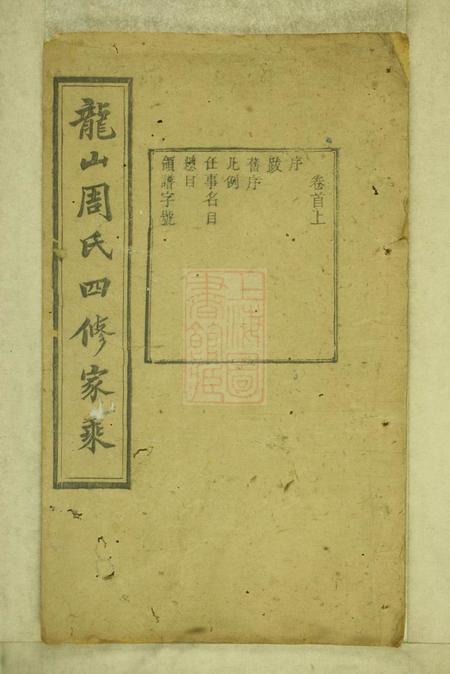 龍山周氏四修家乘
卷首上
序
跋
舊序
凡例
任事名目
總目
領譜字號
上海圖
書館藏